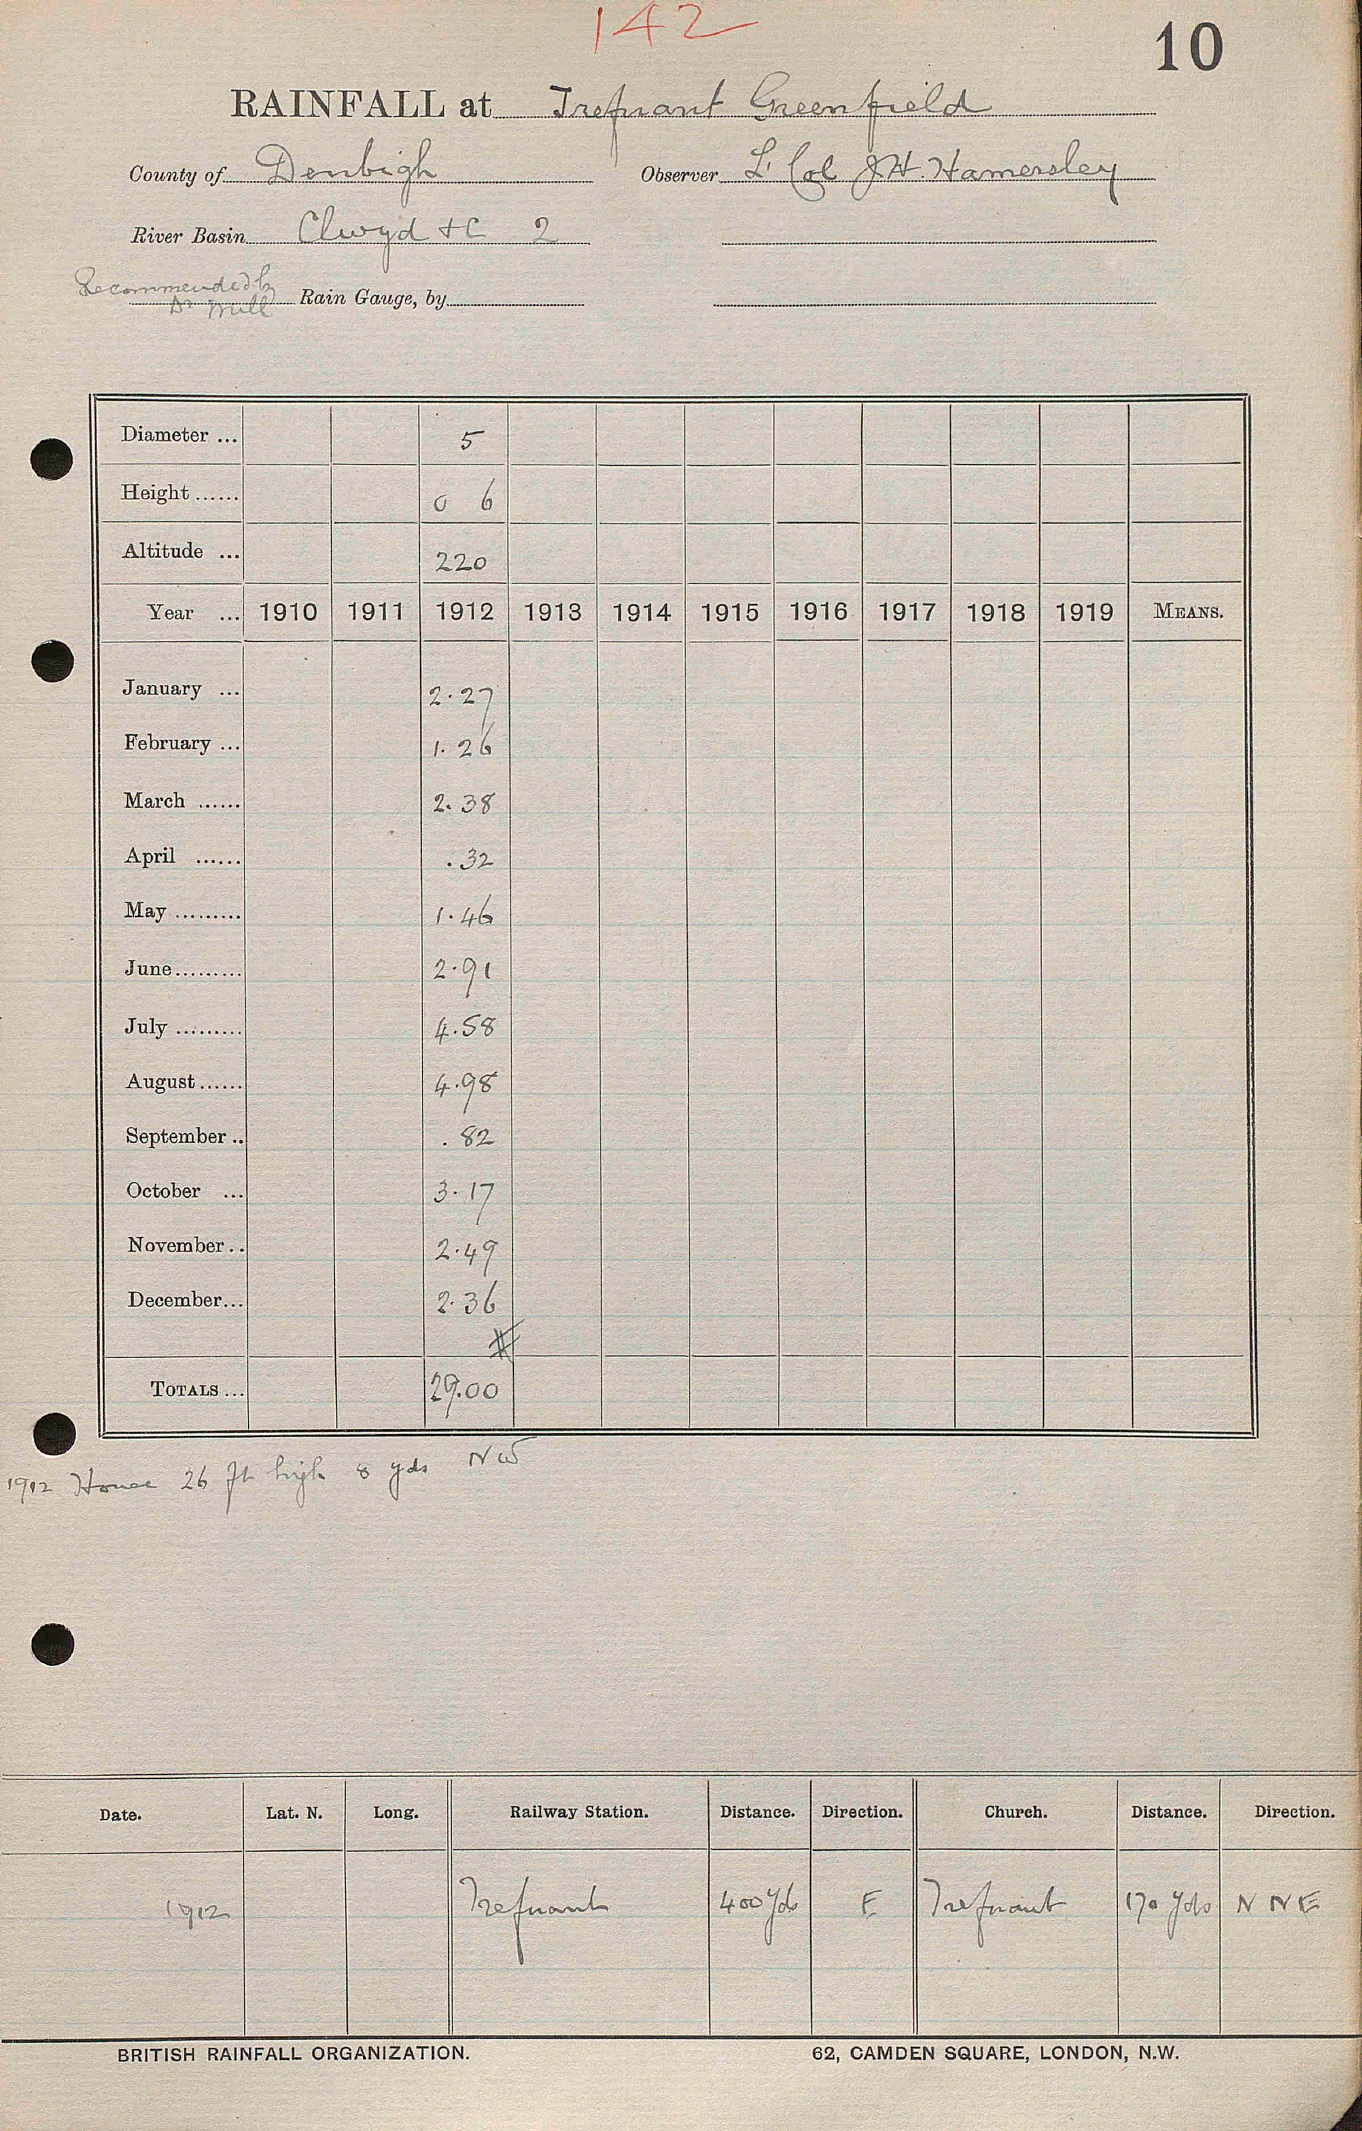 142
10
RAINFALL at Trefnant Greenfield
County of Denbigh Observer Lt Col J H Hamersley
River Basin Clwyd + C 2
Recommended by
Dr Mill Rain Gauge, by
Diameter ... 5
Height ...... 0 6
Altitude ... 220
Year ... 1910 1911 1912 1913 1914 1915 1916 1917 1918 1919 MEANS.
January ... 2.27
February ... 1.26
March ...... 2.38
April ...... .32
May ......... 1.46
June ......... 2.91
July ......... 4.58
August ...... 4.98
September .. .82
October ... 3.17
November .. 2.49
December ... 2.36
TOTALS ... 29.00
1912 House 26 ft high 8 yds NW
Date. Lat. N. Long. Railway Station. Distance. Direction. Church. Distance. Direction.
1912 Trefnant 400 yds E Trefnant 170 yds N N E
BRITISH RAINFALL ORGANIZATION. 62, CAMDEN SQUARE, LONDON, N.W.